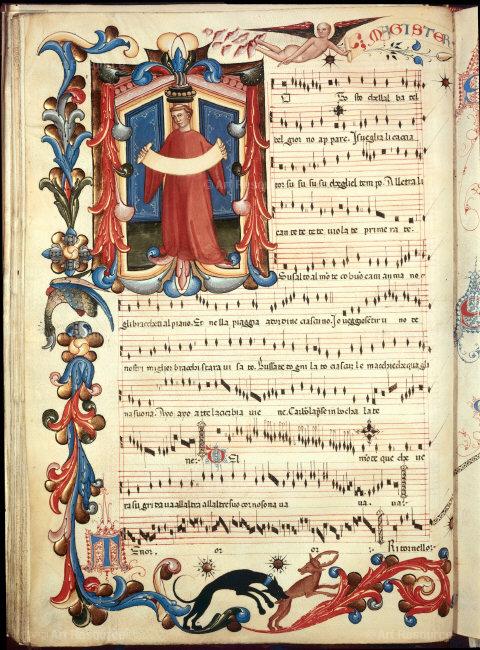 MAGISTER
To sto chellal ba del
bel gior no ap pare. Isueglia li caccia
tor su su su su chegliel tem po. Alletra li
can te te te te viola te prime ra te.
Su salto al mo te co buo cani a ma no e
gli bracchetti al piano. Et nella piaggia a ordine ciascuno. Io veggio sentir u no de
nostri miglior bracchi star a vi sa to. Bussate dogni la to ciascun le macchie che qua gli
na suona. Ayo ayo a tte la cerbia vie ne. Carbon la prese in boccha la te
ne: Del mo te que che ve
ra su gridaua allaltra allaltra suo corno sona ua ua. ua:
Tenor or or Ritornello: